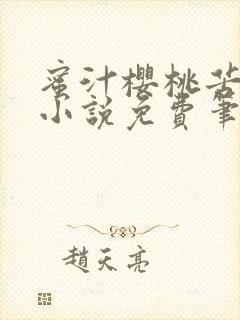 蜜汁櫻桃苦
小說免費筆
趙天亮